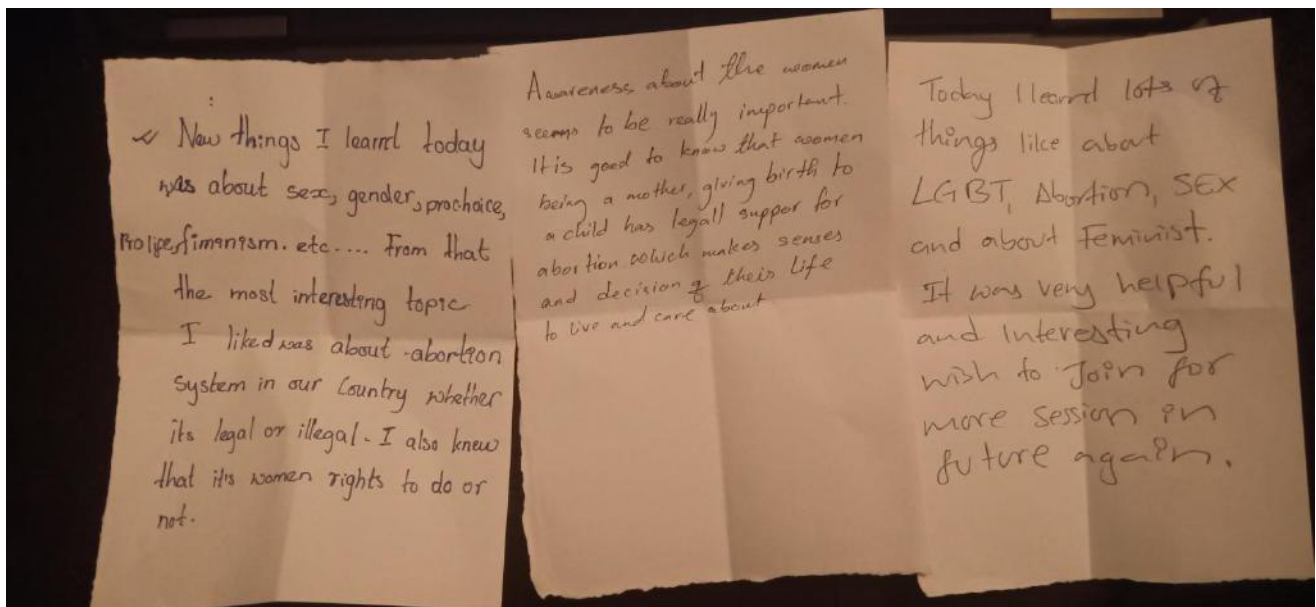 New things I learnd today
was about sex, gender, prochoice,
Prolife, fimanism. etc.... From that
the most interesting topic
I liked was about abortion
System in our Country whether
its legal or illegal. I also knew
that it's women rights to do or
not.
Awareness about the women
seems to be really important.
It is good to know that women
being a mother, giving birth to
a child has legall suppor for
abortion which makes senses
and decision of their life
to live and care about
Today I learnd lots of
things like about
LGBT, Abortion, SEX
and about Feminist.
It was very helpful
and Interesting
wish to Join for
more session in
future again.